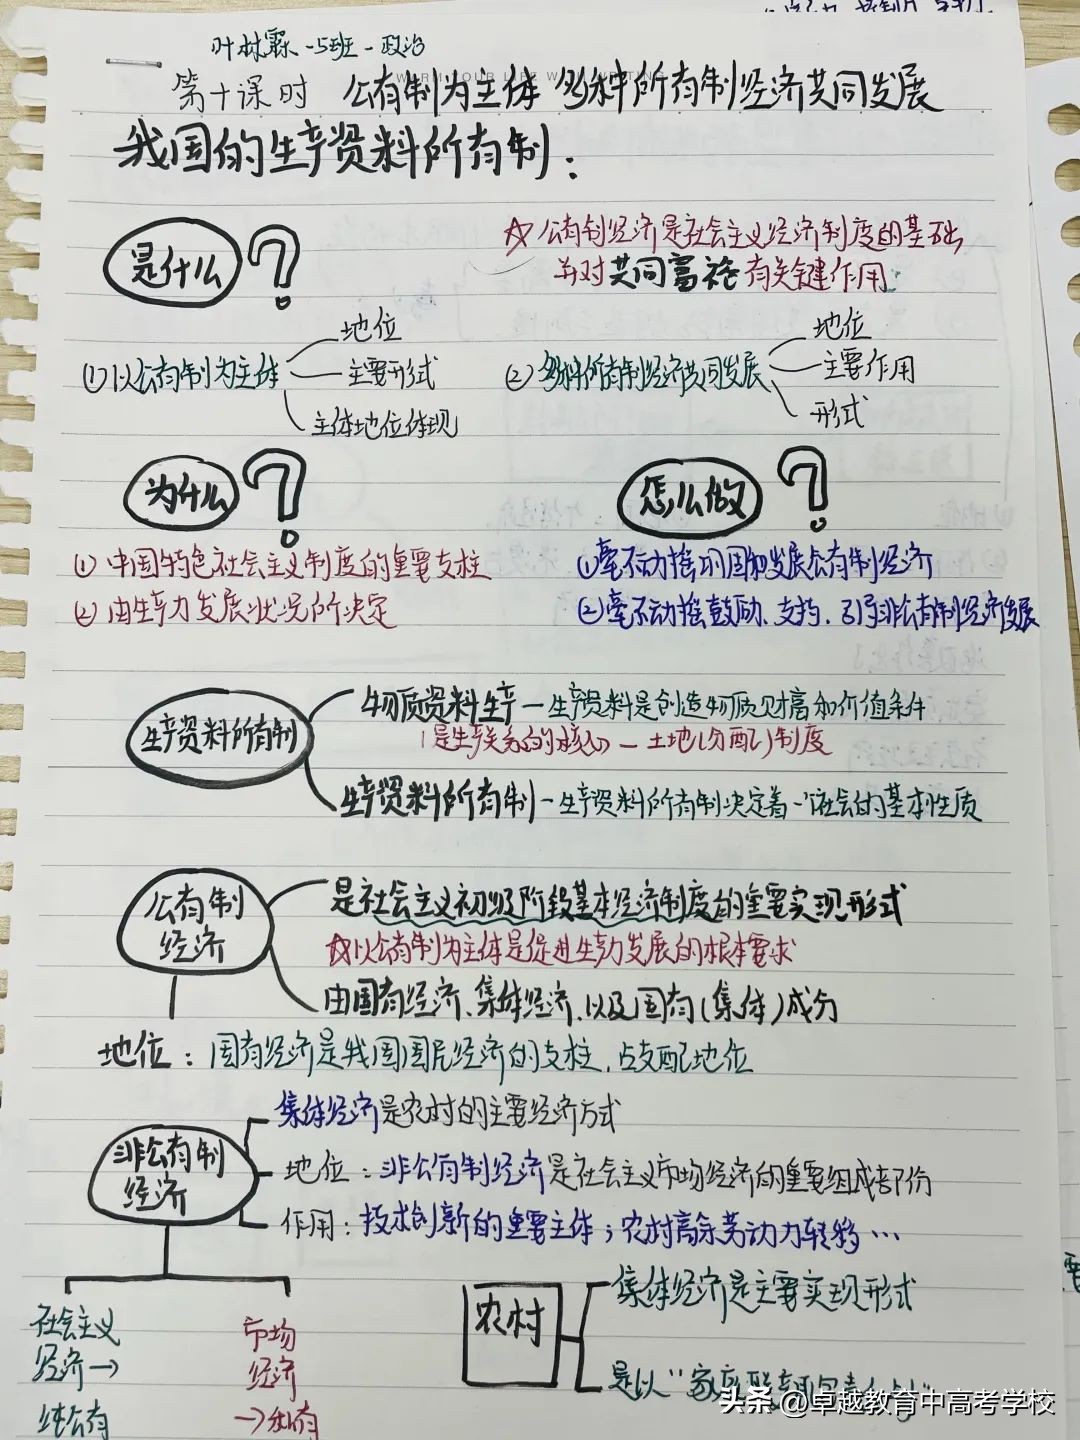 叶村霖-5班-政治
WARM YOUR LIFE WITH WRITING
第十课时 公有制为主体 多种所有制经济共同发展
我国的生产资料所有制：
是什么？
☆公有制经济是社会主义经济制度的基础,
并对共同富裕有关键作用
①以公有制为主体
地位
主要形式
主体地位体现
②多种所有制经济共同发展
地位
主要作用
形式
为什么？
①中国特色社会主义制度的重要支柱
②由生产力发展状况所决定
怎么做？
①毫不动摇巩固和发展公有制经济
②毫不动摇鼓励、支持、引导非公有制经济发展
生产资料所有制
物质资料生产—生产资料是创造物质财富和价值条件
(是生产关系的核心)—土地(分配)制度
生产资料所有制—生产资料所有制决定着一个社会的基本性质
公有制
经济
是社会主义初级阶段基本经济制度的重要实现形式
☆以公有制为主体是促进生产力发展的根本要求
由国有经济、集体经济、以及国有(集体)成分
地位：国有经济是我国国民经济的支柱,占支配地位
集体经济是农村的主要经济方式
非公有制
经济
地位：非公有制经济是社会主义市场经济的重要组成部份
作用：技术创新的重要主体；农村高余劳动力转移…
社会主义
经济→
纯公有
市场
经济
→私有
农村
集体经济是主要实现形式
是以“家庭联
头条@卓越教育中高考学校